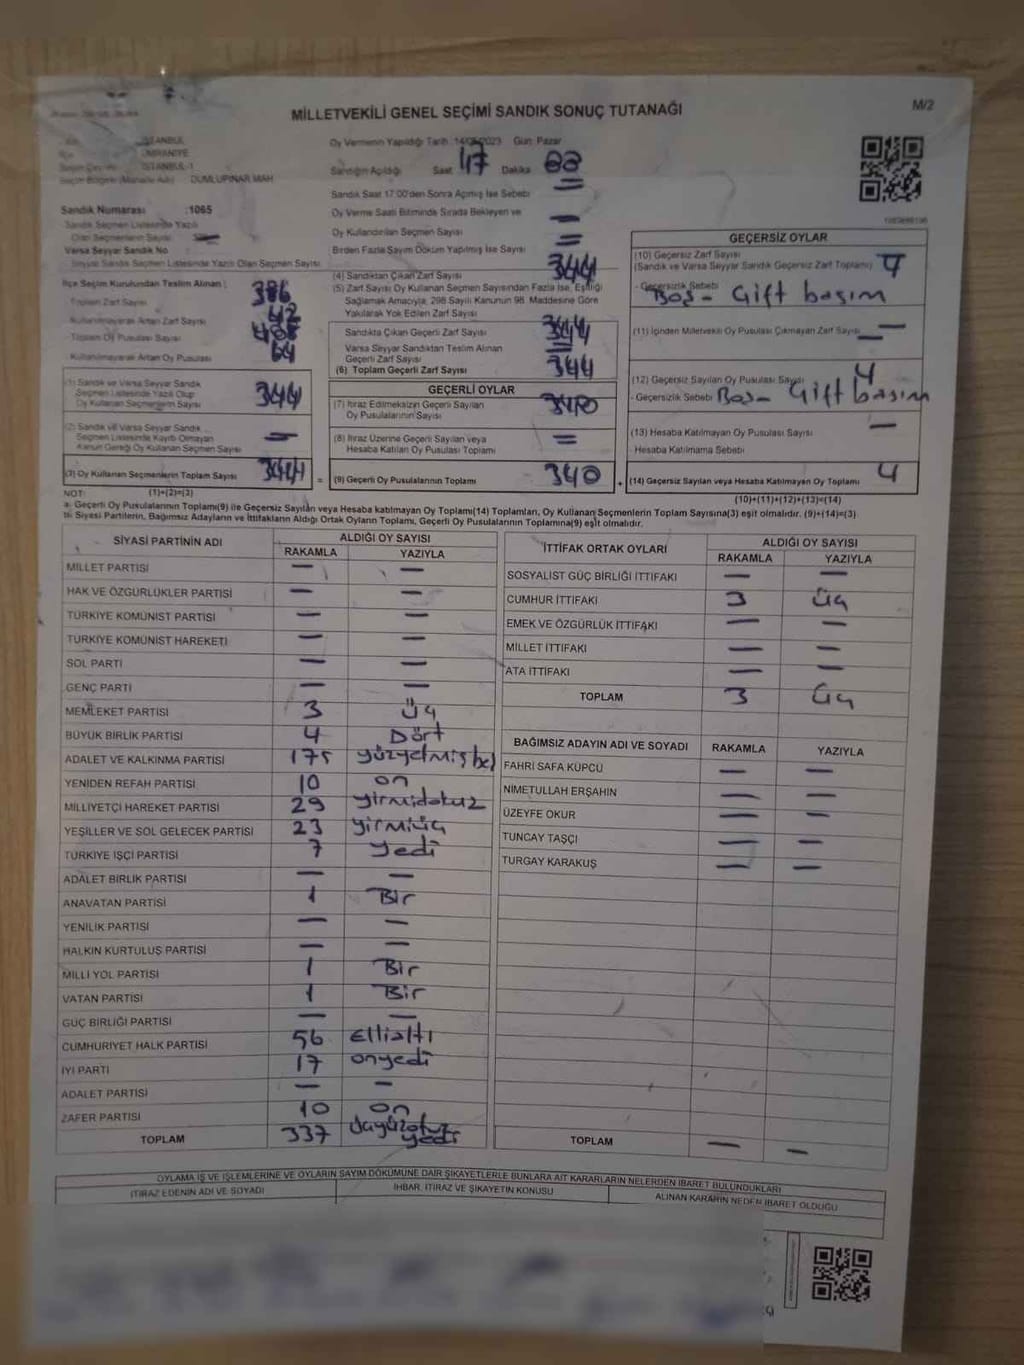 M/2
MİLLETVEKİLİ GENEL SEÇİMİ SANDIK SONUÇ TUTANAĞI
İSTANBUL
ÜMRANİYE
İSTANBUL-1
DUMLUPINAR MAH
Sandık Numarası :1065
Sandık Seçmen Listesinde Yazılı
Olan Seçmenlerin Sayısı
Varsa Seyyar Sandık No
Seyyar Sandık Seçmen Listesinde Yazılı Olan Seçmen Sayısı
İlçe Seçim Kurulundan Teslim Alınan
Toplam Zarf Sayısı 386
Kullanılmayarak Artan Zarf Sayısı 42
Toplam Oy Pusulası Sayısı 408
Kullanılmayarak Artan Oy Pusulası 64
(1) Sandık ve Varsa Seyyar Sandık
Seçmen Listesinde Yazılı Olup
Oy Kullanan Seçmenlerin Sayısı 344
(2) Sandık ve Varsa Seyyar Sandık
Seçmen Listesinde Kayıtlı Olmayan
Kanun Gereği Oy Kullanan Seçmen Sayısı –
(3) Oy Kullanan Seçmenlerin Toplam Sayısı 344
Oy Vermenin Yapıldığı Tarih :14/05/2023 Gün: Pazar
Sandığın Açıldığı Saat 17 Dakika
Sandık Saat 17:00'den Sonra Açılmış İse Sebebi
Oy Verme Saati Bitiminde Sırada Bekleyen ve
Oy Kullandırılan Seçmen Sayısı
Birden Fazla Sayım Döküm Yapılmış İse Sayısı
(4) Sandıktan Çıkan Zarf Sayısı 344
(5) Zarf Sayısı Oy Kullanan Seçmen Sayısından Fazla İse, Eşitliği
Sağlamak Amacıyla, 298 Sayılı Kanunun 98. Maddesine Göre
Yakılarak Yok Edilen Zarf Sayısı
Sandıkta Çıkan Geçerli Zarf Sayısı 344
Varsa Seyyar Sandıktan Teslim Alınan
Geçerli Zarf Sayısı
(6) Toplam Geçerli Zarf Sayısı 344
GEÇERLİ OYLAR
(7) İtiraz Edilmeksizin Geçerli Sayılan
Oy Pusulalarının Sayısı 340
(8) İtiraz Üzerine Geçerli Sayılan veya
Hesaba Katılan Oy Pusulası Toplamı =
(9) Geçerli Oy Pusulalarının Toplamı 340
GEÇERSİZ OYLAR
(10) Geçersiz Zarf Sayısı
(Sandık ve Varsa Seyyar Sandık Geçersiz Zarf Toplamı) 4
- Geçersizlik Sebebi Boş - Çift basım
(11) İçinden Milletvekili Oy Pusulası Çıkmayan Zarf Sayısı –
(12) Geçersiz Sayılan Oy Pusulası Sayısı 4
- Geçersizlik Sebebi Boş - Çift basım
(13) Hesaba Katılmayan Oy Pusulası Sayısı –
Hesaba Katılmama Sebebi
(14) Geçersiz Sayılan veya Hesaba Katılmayan Oy Toplamı 4
NOT: (1)+(2)=(3)
(10)+(11)+(12)+(13)=(14)
a- Geçerli Oy Pusulalarının Toplamı(9) ile Geçersiz Sayılan veya Hesaba katılmayan Oy Toplamı(14) Toplamları, Oy Kullanan Seçmenlerin Toplam Sayısına(3) eşit olmalıdır. (9)+(14)=(3).
b- Siyasi Partilerin, Bağımsız Adayların ve İttifakların Aldığı Ortak Oyların Toplamı, Geçerli Oy Pusulalarının Toplamına(9) eşit olmalıdır.
SİYASİ PARTİNİN ADI ALDIĞI OY SAYISI
RAKAMLA YAZIYLA
MİLLET PARTİSİ – –
HAK VE ÖZGÜRLÜKLER PARTİSİ – –
TÜRKİYE KOMÜNİST PARTİSİ – –
TÜRKİYE KOMÜNİST HAREKETİ – –
SOL PARTİ – –
GENÇ PARTİ – –
MEMLEKET PARTİSİ 3 üç
BÜYÜK BİRLİK PARTİSİ 4 Dört
ADALET VE KALKINMA PARTİSİ 175 yüzyetmişbeş
YENİDEN REFAH PARTİSİ 10 on
MİLLİYETÇİ HAREKET PARTİSİ 29 yirmidokuz
YEŞİLLER VE SOL GELECEK PARTİSİ 23 yirmiüç
TÜRKİYE İŞÇİ PARTİSİ 7 yedi
ADALET BİRLİK PARTİSİ – –
ANAVATAN PARTİSİ 1 Bir
YENİLİK PARTİSİ – –
HALKIN KURTULUŞ PARTİSİ – –
MİLLİ YOL PARTİSİ 1 Bir
VATAN PARTİSİ 1 Bir
GÜÇ BİRLİĞİ PARTİSİ – –
CUMHURİYET HALK PARTİSİ 56 Ellialtı
İYİ PARTİ 17 onyedi
ADALET PARTİSİ – –
ZAFER PARTİSİ 10 on
TOPLAM 337 üçyüzotuzyedi
İTTİFAK ORTAK OYLARI ALDIĞI OY SAYISI
RAKAMLA YAZIYLA
SOSYALİST GÜÇ BİRLİĞİ İTTİFAKI – –
CUMHUR İTTİFAKI 3 üç
EMEK VE ÖZGÜRLÜK İTTİFAKI – –
MİLLET İTTİFAKI – –
ATA İTTİFAKI – –
TOPLAM 3 üç
BAĞIMSIZ ADAYIN ADI VE SOYADI RAKAMLA YAZIYLA
FAHRİ SAFA KÜPCÜ – –
NİMETULLAH ERŞAHİN – –
ÜZEYFE OKUR – –
TUNCAY TAŞÇI – –
TURGAY KARAKUŞ – –
TOPLAM – –
OYLAMA İŞ VE İŞLEMLERİNE VE OYLARIN SAYIM DÖKÜMÜNE DAİR ŞİKAYETLERLE BUNLARA AİT KARARLARIN NELERDEN İBARET BULUNDUKLARI
İTİRAZ EDENİN ADI VE SOYADI İHBAR, İTİRAZ VE ŞİKAYETİN KONUSU ALINAN KARARIN NEDEN İBARET OLDUĞU